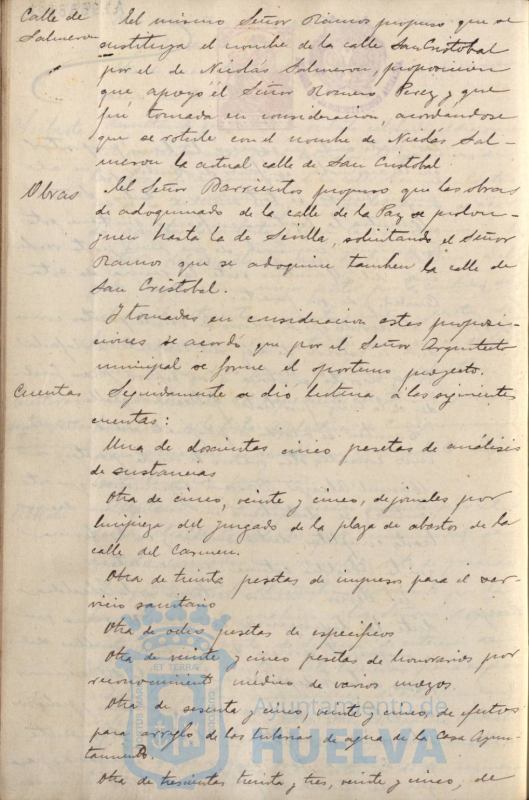 Calle de
Salmeron
El mismo Señor Ramos propuso que se
sustituya el nombre de la calle San Cristobal
por el de Nicolás Salmeron, proposicion
que apoyó el Señor Romero Perez y que
fué tomada en consideracion, acordandose
que se rotule con el nombre de Nicolás Sal-
meron la actual calle de San Cristobal.
Obras
El Señor Barrientos propuso que las obras
de adoquinado de la calle de la Paz se prolon-
guen hasta la de Sevilla, solicitando el Señor
Ramos que se adoquine tambien la calle de
San Cristobal.
Y tomadas en consideracion estas proposi-
ciones se acordó que por el Señor Arquitecto
municipal se forme el oportuno proyecto.
Cuentas
Seguidamente se dio lectura a las siguientes
cuentas:
Una de doscientas cinco pesetas de análisis
de sustancias
Otra de cinco, veinte y cinco, de jornales por
limpieza del juzgado de la plaza de abastos de la
calle del Carmen.
Otra de treinta pesetas de impresos para el ser-
vicio sanitario
Otra de ocho pesetas de especificos
Otra de veinte y cinco pesetas de honorarios por
reconocimiento médico de varios mozos
Otra de sesenta y cinco, veinte y cinco, de efectos
para arreglo de las tuberias de agua de la Casa Ayun-
tamiento.
Otra de trescientas treinta y tres, veinte y cinco, de
Ayuntamiento de
HUELVA